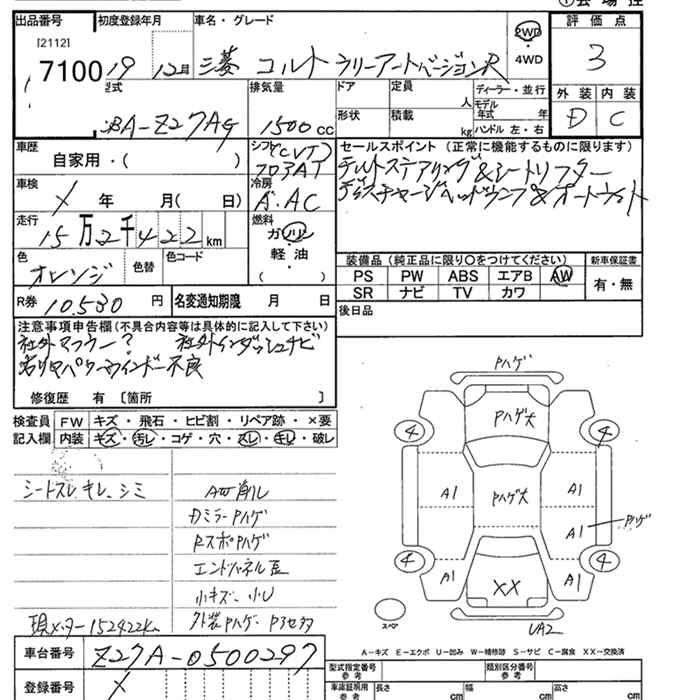 出品番号 初度登録年月 車名・グレード 評価点
[2112]
7100 19 12月 三菱 コルト ラリーアートバージョンR 2WD・4WD 3
型式 排気量 ドア 定員 人 ディーラー・並行 外装 内装
モデル年式 年
CBA-Z27AG 1500cc 形状 積載 kg ハンドル 左・右 D C
車歴 シフト セールスポイント (正常に機能するものに限ります)
自家用・( ) (CVT) フロアAT チルトステアリング&シートリフター
車検 冷房 ディスチャージヘッドランプ&オートライト
X 年 月(日) A・AC
走行 燃料
15万2千422km ガソリン・軽油・( )
色 色替 色コード 装備品 (純正品に限り〇をつけてください) 新車保証書
オレンジ PS PW ABS エアB AW 有・無
SR ナビ TV カワ
R券 10,530円 名変通知期限 月 日 後日品
注意事項申告欄(不具合内容等は具体的に記入して下さい)
社外マフラー? 社外インダッシュナビ
右リヤパワーウインドー不良
修復歴 有 〔箇所 〕
検査員 FW キズ・飛石・ヒビ割・リペア跡・×要
記入欄 内装 キズ・汚レ・コゲ・穴・スレ・キレ・破レ
シートスレ キレ、シミ AW削レ
カミラーPハゲ
RスポPハゲ
エンドパネル
小キズ、小U
現メーター152422km 外装Pハゲ
車台番号 Z27A-0500297
登録番号 X
Pハゲ
Pハゲ大
4 4
A1 Pハゲ大 A1
A1 Pハゲ
4 4
A1 XX A1
スペア UA2
A-キズ E-エクボ U-凹み W-補修跡 S-サビ C-腐食 XX-交換済
型式指定番号 参考 類別区分番号 参考
車庫証明用 参考 長さ cm 幅 cm 高さ cm